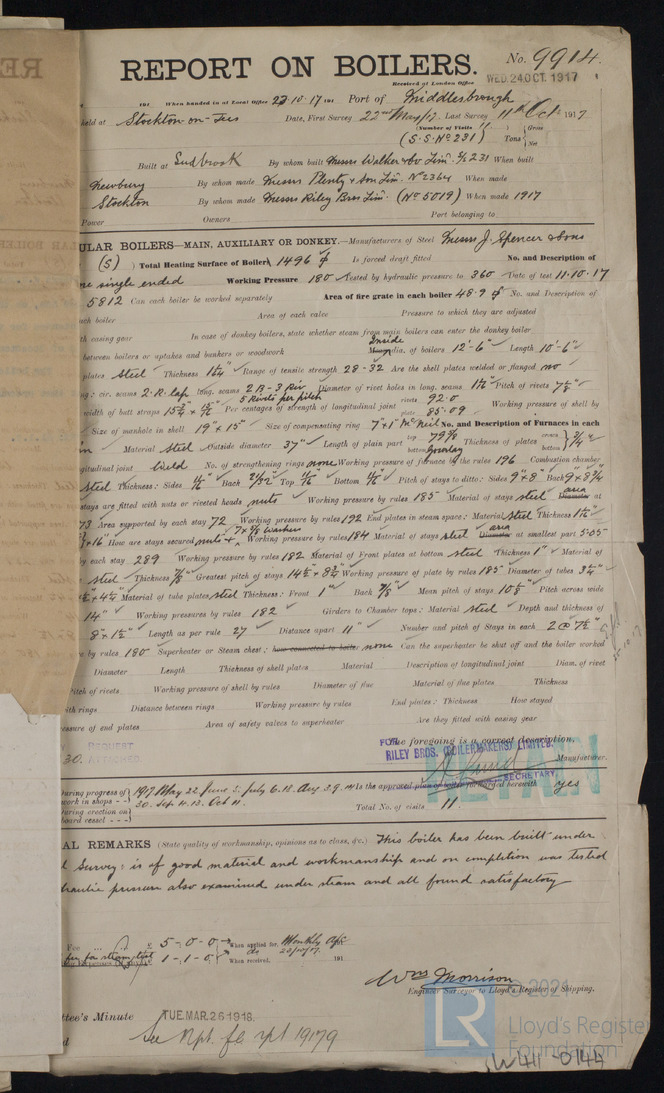 REPORT ON BOILERS.
No. 9914.
Received at London Office WED. 24 OCT. 1917
191 When handed in at Local Office 23.10.17 191 Port of Middlesbrough
held at Stockton-on-Tees Date, First Survey 22nd May/17. Last Survey 11th Oct 1917
(Number of Visits 11 ) Gross
(S.S. No 231) Tons Net
Built at Sudbrook By whom built Messrs Walker & Co Lim. S/S 231 When built
Newbury By whom made Messrs Plenty & Son Lim. No 2364 When made
Stockton By whom made Messrs Riley Bros Lim. (No 5019) When made 1917
Power Owners Port belonging to
ULAR BOILERS—MAIN, AUXILIARY OR DONKEY.—Manufacturers of Steel Messrs J. Spencer & Sons
(S) ) Total Heating Surface of Boilers 1496 Is forced draft fitted No. and Description of
single ended Working Pressure 180 Tested by hydraulic pressure to 360 Date of test 11.10.17
5812 Can each boiler be worked separately Area of fire grate in each boiler 48.9 No. and Description of
each boiler Area of each valve Pressure to which they are adjusted
th easing gear In case of donkey boilers, state whether steam from main boilers can enter the donkey boiler
between boilers or uptakes and bunkers or woodwork Inside dia. of boilers 12'-6" Length 10'-6"
plates Steel Thickness Range of tensile strength 28-32 Are the shell plates welded or flanged no
cir. seams 2.R.lap long. seams Diameter of rivet holes in long. seams Pitch of rivets
5 Rivets per pitch
width of butt straps Per centages of strength of longitudinal joint rivets 92.0 plate 85.09 Working pressure of shell by
Size of manhole in shell 19" × 15" Size of compensating ring 7" × 1" McNeil No. and Description of Furnaces in each
Material Steel Outside diameter 37" Length of plain part top bottom Thickness of plates crown bottom
gitudinal joint Weld No. of strengthening rings none Working pressure of furnace by the rules 196 Combustion chamber
Steel Thickness: Sides Back Top Bottom Pitch of stays to ditto: Sides Back
stays are fitted with nuts or riveted heads nuts Working pressure by rules 185 Material of stays steel area Diameter at
Area supported by each stay 72 Working pressure by rules 192 End plates in steam space: Material Steel Thickness
How are stays secured nuts & washers Working pressure by rules 184 Material of stays steel area Diameter at smallest part 5.05
by each stay 289 Working pressure by rules 182 Material of Front plates at bottom steel Thickness 1" Material of
steel Thickness Greatest pitch of stays Working pressure of plate by rules 185 Diameter of tubes
Material of tube plates steel Thickness: Front 1" Back Mean pitch of stays Pitch across wide
14" Working pressures by rules 182 Girders to Chamber tops: Material steel Depth and thickness of
Length as per rule 27 Distance apart 11" Number and pitch of Stays in each
by rules 180 Superheater or Steam chest; how connected to boiler none Can the superheater be shut off and the boiler worked
Diameter Length Thickness of shell plates Material Description of longitudinal joint Diam. of rivet
Pitch of rivets Working pressure of shell by rules Diameter of flue Material of flue plates Thickness
ith rings Distance between rings Working pressure by rules End plates: Thickness How stayed
ressure of end plates Area of safety valves to superheater Are they fitted with easing gear
REQUEST
ATTACHED
30.
The foregoing is a correct description,
FOR RILEY BROS. (BOILERMAKERS) LIMITED,
Manufacturer.
SECRETARY.
RETAIN
During progress of work in shops - - 1917 May 22. June 5. July 6. 18. Aug 3. 9. Is the approved plan of boiler forwarded herewith yes
during erection on board vessel - - - 30. Sep 4. 13. Oct 11. Total No. of visits 11.
AL REMARKS (State quality of workmanship, opinions as to class, &c.) This boiler has been built under
Survey: is of good material and workmanship and on completion was tested
hydraulic pressure also examined under steam and all found satisfactory
Fee ... £ 5-0-0 When applied for, Monthly a/c
fee for steam test 1-1-0 When received, 191
Wm Morrison
Engineer Surveyor to Lloyd's Register of Shipping.
ttee's Minute TUE. MAR. 26 1918.
See Rpt. fe rpt 19179
© 2021
LR
Lloyd's Register
Foundation
W411-0144